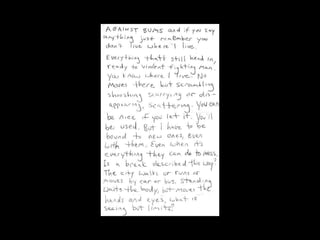 AGAINST BUMS and if you say
anything just remember you
don't live where I live.
Everything that's still head on,
ready to violent fighting man.
You know where I live? No
moves there but scrambling
shooting scurrying or dis-
appearing, scattering. You can
be nice if you let it. You'll
be used. But I have to be
bound to new ones, even
with them. Even when its
everything they can do to miss.
Is a break described the way?
The city waits or runs or
moves by car or bus. Standing
waits the body, but moves the
hands and eyes, what is
seeing but limits?